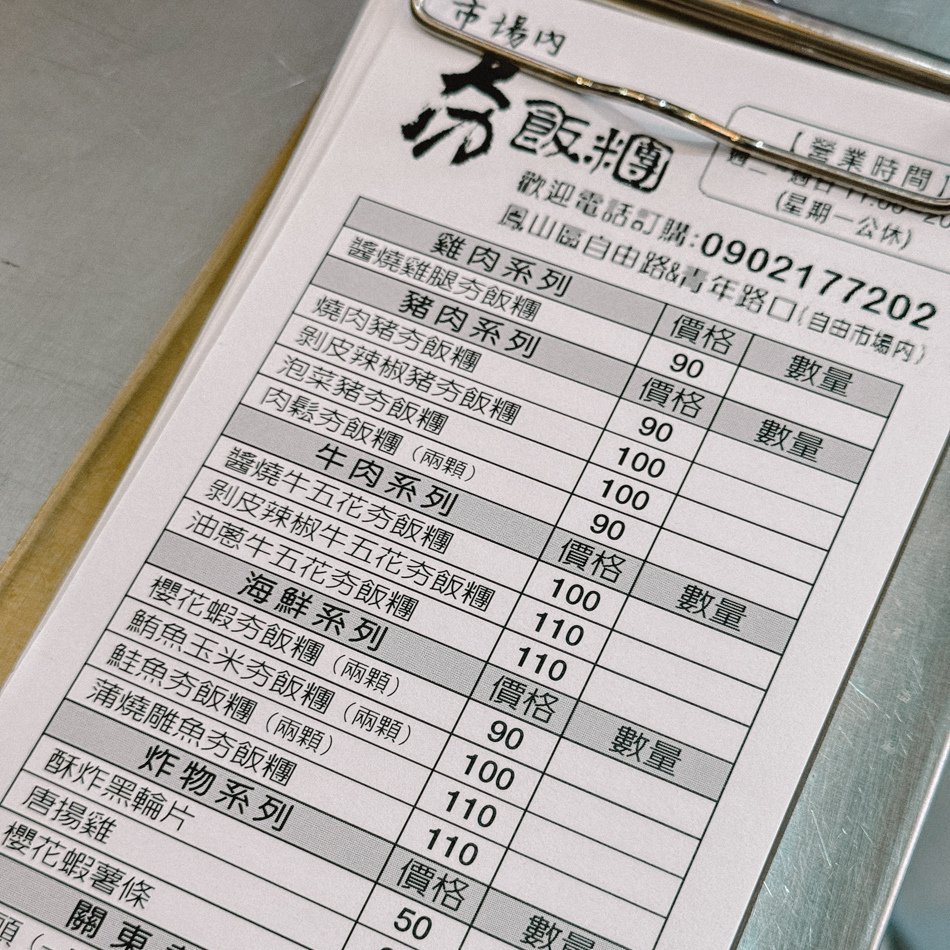 市場內
夯飯糰
【營業時間】
(星期一公休)
歡迎電話訂購:0902177202
鳳山區自由路&青年路口(自由市場內)
雞肉系列 價格 數量
醬燒雞腿夯飯糰 90
豬肉系列 價格 數量
燒肉豬夯飯糰 90
剝皮辣椒豬夯飯糰 100
泡菜豬夯飯糰 100
肉鬆夯飯糰(兩顆) 90
牛肉系列 價格 數量
醬燒牛五花夯飯糰 100
剝皮辣椒牛五花夯飯糰 110
油蔥牛五花夯飯糰 110
海鮮系列 價格 數量
櫻花蝦夯飯糰(兩顆) 90
鮪魚玉米夯飯糰(兩顆) 100
鮭魚夯飯糰(兩顆) 110
蒲燒雕魚夯飯糰 110
炸物系列 價格 數量
酥炸黑輪片 50
唐揚雞
櫻花蝦薯條
關東